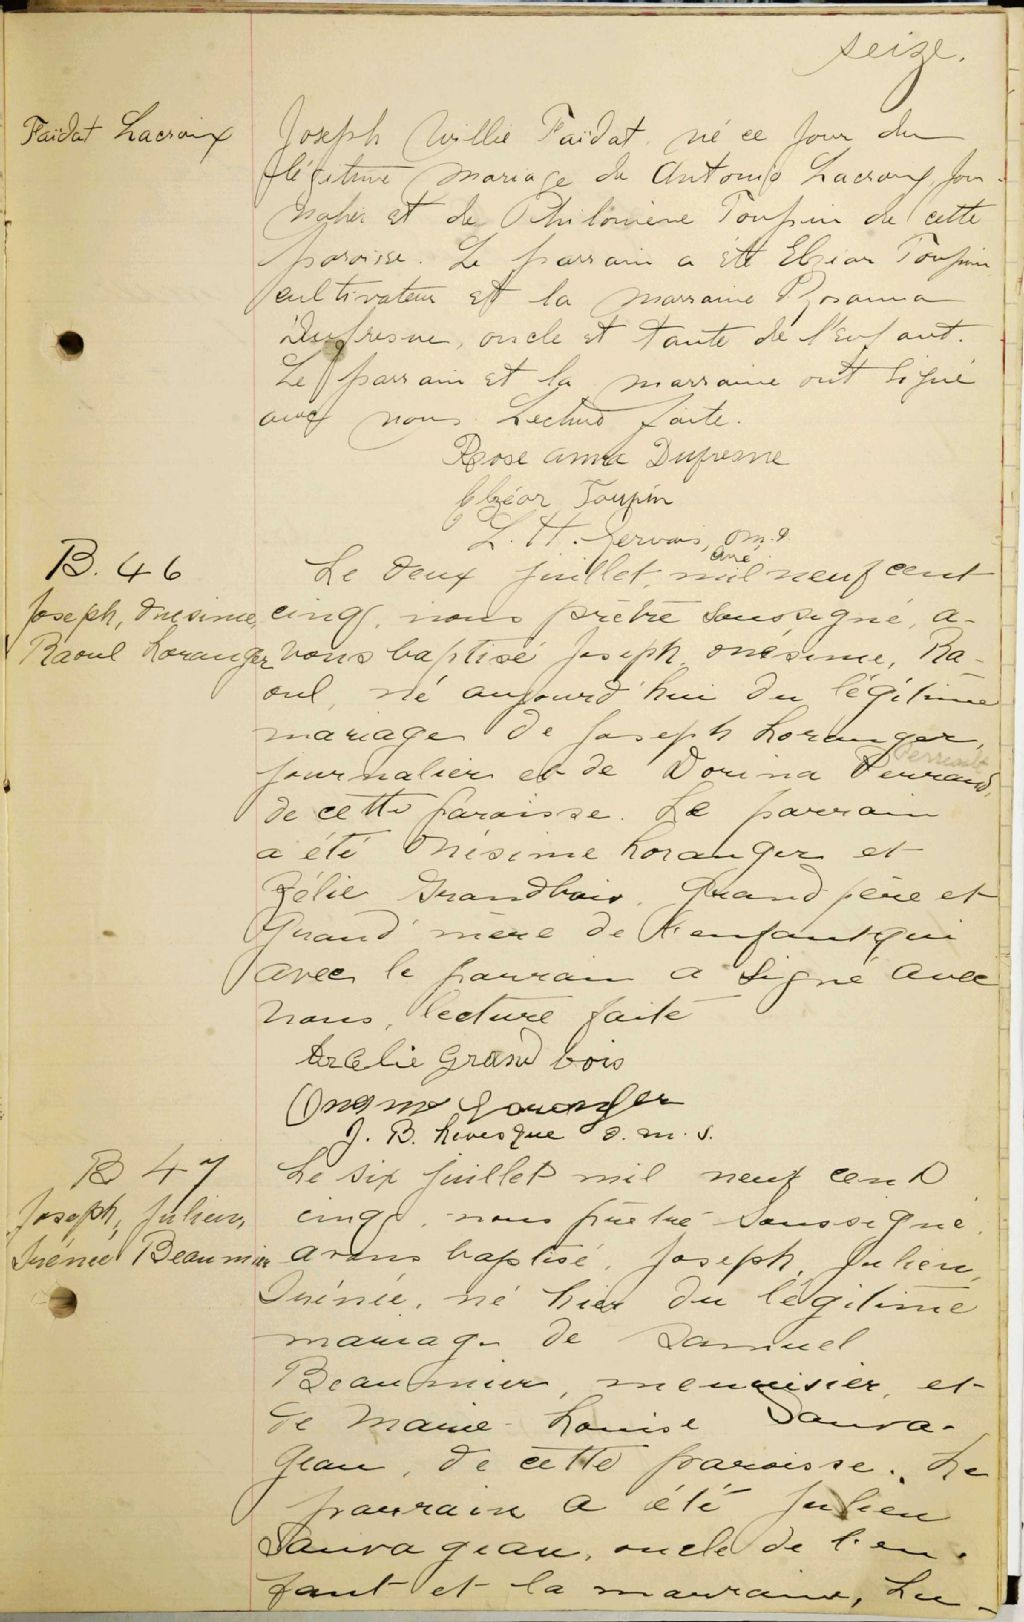 seize.
Faïdat Lacroix
Joseph Willie Faïdat, né ce jour du
légitime mariage de Antonio Lacroix, jour-
nalier et de Philomène Toupin de cette
paroisse. Le parrain a été Elzéar Toupin
cultivateur et la marraine Rosanna
Dufresne, oncle et tante de l'enfant.
Le parrain et la marraine ont signé
avec nous. Lecture faite.
Rose Anna Dufresne
Elzéar Toupin
L. H. Gervais,
B. 46
Joseph, Onésime,
Raoul Loranger
Le deux juillet mil neuf cent
cinq, nous prêtre soussigné, a-
vons baptisé Joseph, Onésime, Ra-
oul, né aujourd'hui du légitime
mariage de Joseph Loranger,
journalier et de Dorina Perraud,
de cette paroisse. Le parrain
a été Onésime Loranger et
Zélie Grandbois, Grand père et
Grand mère de l'enfant qui
avec le parrain a signé avec
nous, lecture faite
Grandbois
Loranger
J. B. Levesque o.m.s.
B 47
Joseph, Julien,
Irénée Beaumier
Le six juillet mil neuf cent
cinq, nous prêtre soussigné,
avons baptisé, Joseph, Julien,
Irénée, né hier du légitime
mariage de Samuel
Beaumier, menuisier, et
de Marie-Louise Sauva-
geau, de cette paroisse. Le
parrain a été Julien
Sauvageau, oncle de l'en-
fant et la marraine, Lu-